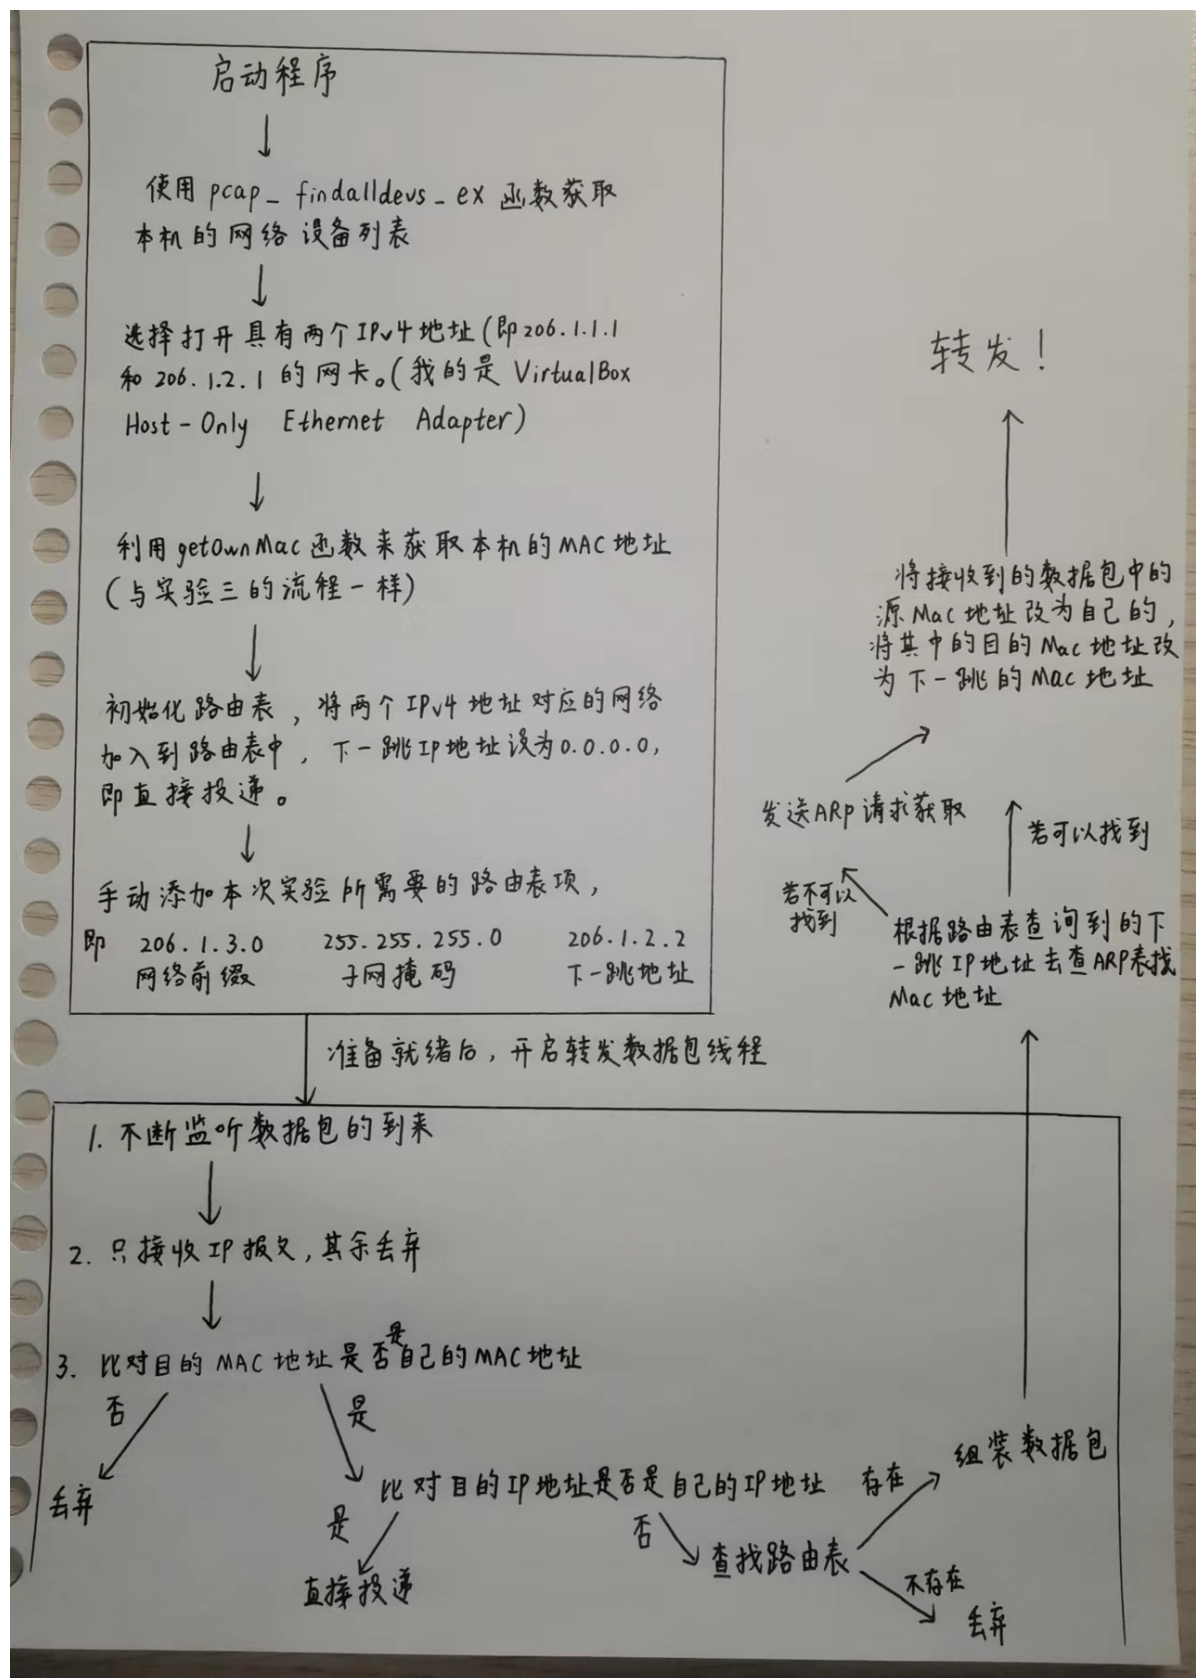 启动程序
使用 pcap_findalldevs_ex 函数获取
本机的网络设备列表
选择打开具有两个IPv4地址(即206.1.1.1
和206.1.2.1的网卡。(我的是 VirtualBox
Host-Only Ethernet Adapter)
利用getOwnMac函数来获取本机的MAC地址
(与实验三的流程一样)
初始化路由表，将两个IPv4地址对应的网络
加入到路由表中，下一跳IP地址设为0.0.0.0,
即直接投递。
手动添加本次实验所需要的路由表项，
即 206.1.3.0 255.255.255.0 206.1.2.2
网络前缀 子网掩码 下一跳地址
准备就绪后，开启转发数据包线程
1. 不断监听数据包的到来
2. 只接收IP报文，其余丢弃
3. 比对目的MAC地址是否是自己的MAC地址
否
是
丢弃
比对目的IP地址是否是自己的IP地址
是
直接投递
否
查找路由表
存在
不存在
丢弃
组装数据包
根据路由表查询到的下
一跳IP地址去查ARP表找
Mac地址
若不可以
找到
若可以找到
发送ARP请求获取
将接收到的数据包中的
源Mac地址改为自己的，
将其中的目的Mac地址改
为下一跳的Mac地址
转发！